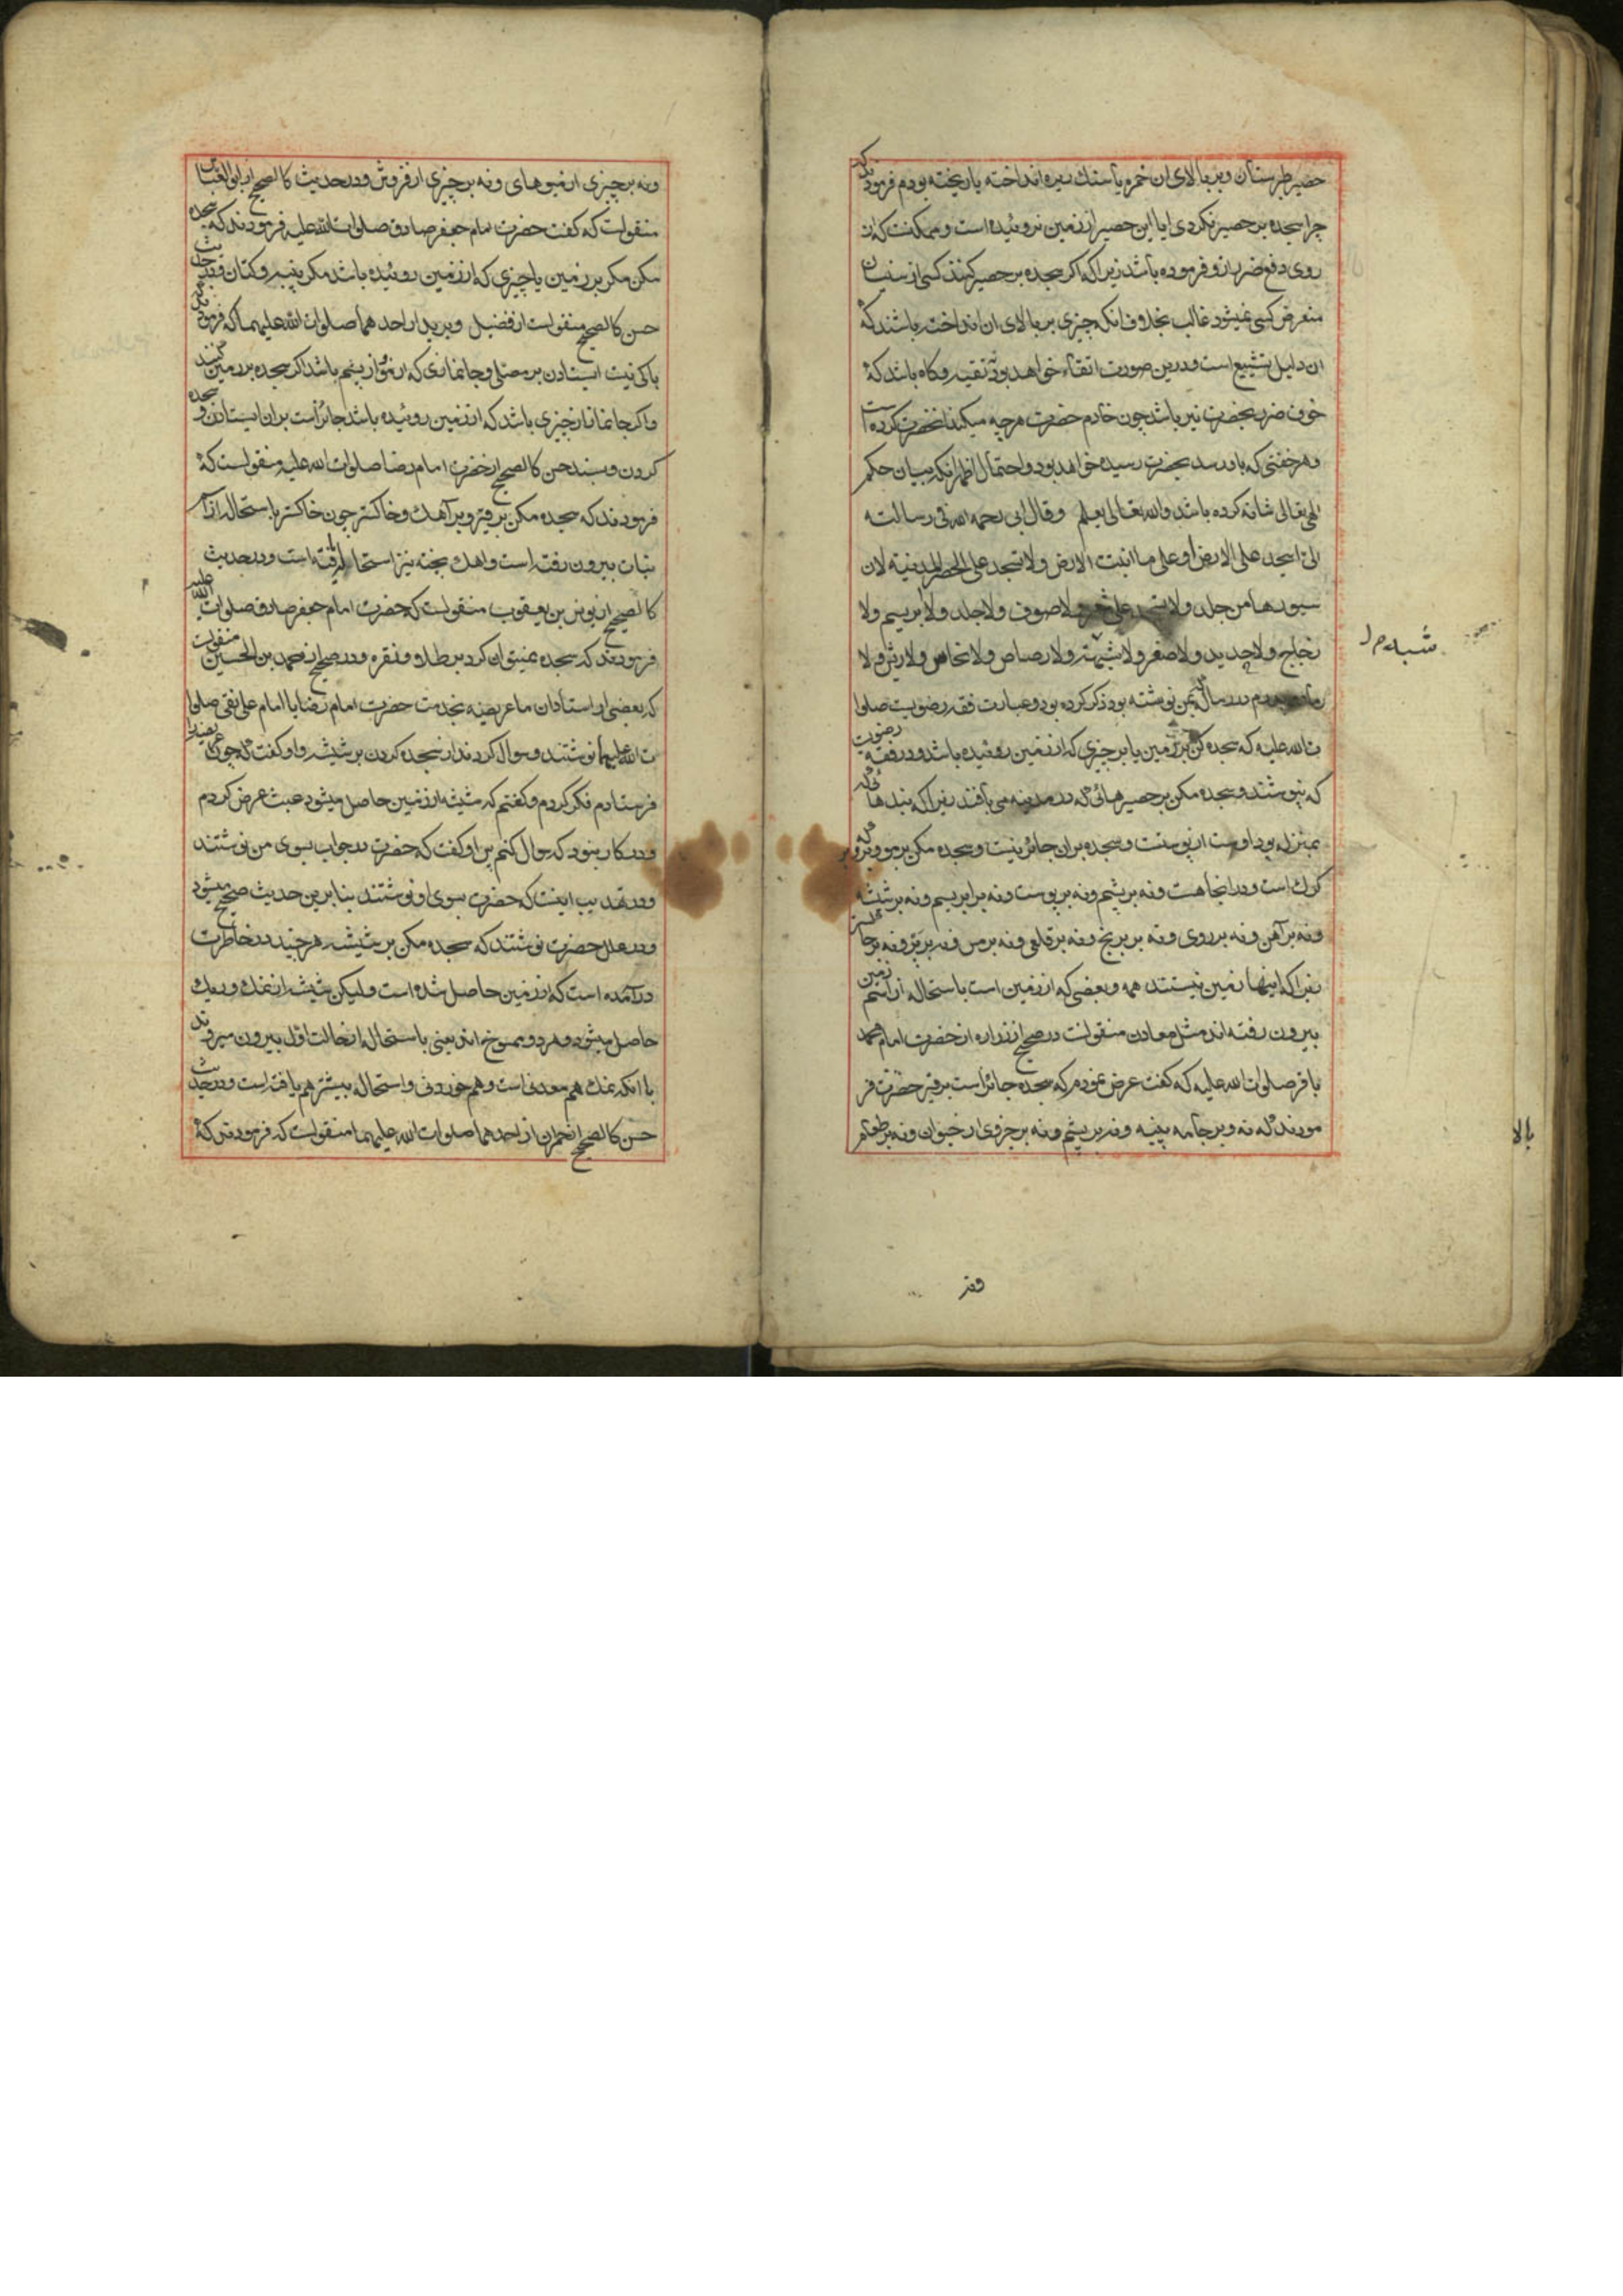 حصیر طبرستان و بر بالای ان خمره یا سنک ریزه انداخته یا ریخته بودم فرمودند که
چرا سجده بر حصیر نکردی ایا این حصیر از زمین نروئیده است و ممکنست که از
روی دفع ضرر از او فرموده باشد زیرا که اکر سجده بر حصیر کنند کسی از سنیان
متعرض کسی نمیشود غالب بخلاف انکه چیزی بر بالای ان انداخته باشند که
ان دلیل تشیع است و درین صورت اتقاء خواهد بود نه تقیه و کاه باشد که
خوف ضرر بحضرت نیز باشد چون خادم حضرت هرچه میکند انحضرت کرده است
و هر خفتی که باو رسد بحضرت رسیده خواهد بود و احتمال اظهر انکه بیان حکم
الهی تعالی شانه کرده باشد والله تعالی یعلم وقال ابی رحمه الله فی رسالته
الی اسجد علی الارض او علی ما انبتت الارض ولا تسجد علی الحصر المدنیه لان
سیورها من جلد ولا تسجد علی شعر ولا صوف ولا جلد ولا ابریسم ولا
زجاج ولا حدید ولا صفر ولا شبه ولا رصاص ولا نحاس ولا ریش ولا
رماد پدرم در رساله که بمن نوشته بود ذکر کرده بود و عبارت فقه رضویست صلوا
ت الله علیه که سجده کن بر زمین یا بر چیزی که از زمین روئیده باشد و در فقه رضویت
که نپوشند و سجده مکن بر حصیرهائی که در مدینه می بافند زیرا که بندهائی که
بمنزله پود اوست از پوستست و سجده بران جائز نیست و سجده مکن بر مو و بر
کرک است و در انجا هست و نه بر پشم و نه بر پوست و نه بر ابریسم و نه بر شیشه
و نه بر آهن و نه بر روی و نه بر برنج و نه بر قلعی و نه بر مس و نه بر پر و نه بر خاکستر
زیرا که اینها زمین نیستند همه و بعضی که از زمین است باستحاله از اسم زمین
بیرون رفته اند مثل معادن منقولست در صحیح از زراره از حضرت امام محمد
باقر صلوات الله علیه که کفت عرض نمودم که سجده جائز است بر قیر حضرت فر
مودند که نه و بر جامه پنبه و نه بر پشم و نه بر جزوی از حیوان و نه بر طعام
شبه م
بالا
و نه بر چیزی از میوهای و نه بر چیزی از فروش و در حدیث کالصحیح از ابوالعباس
منقولست که کفت حضرت امام جعفر صادق صلوات الله علیه فرمودند که سجده
مکن مکر بر زمین یا چیزی که از زمین روئیده باشد مکر پنبه و کتان و در حدیث
حسن کالصحیح منقولست از فضیل و برید از احدهما صلوات الله علیهما که فرمودند که
باکی نیست ایستادن بر مصلی و جانمازی که از مو و از پشم باشد اکر سجده بر زمین کنند
واکر جانماز از چیزی باشد که از زمین روئیده باشد جائز است بران ایستادن و سجده
کردن و بسند حسن کالصحیح از حضرت امام رضا صلوات الله علیه منقولست که
فرمودند که سجده مکن بر قیر و بر آهک و خاکستر چون خاکستر باستحاله از
نبات بیرون رفته است و اهک پخته نیز استحاله یافته است و در حدیث
کالصحیح از یونس بن یعقوب منقولست که حضرت امام جعفر صادق صلوات الله علیه
فرمودند که سجده نمیتوان کرد بر طلا و نقره و در صحیح از محمد بن الحسین منقولست
که بعضی از استادان ما عریضه بخدمت حضرت امام رضا یا امام علی نقی صلوا
ت الله علیهما نوشتند و سوال کردند از سجده کردن بر شیشه و او کفت که چون عریضه را
فرستادم فکر کردم و کفتم که شیشه از زمین حاصل میشود عبث عرض کردم
و در کار نبود که سوال کنم پس او کفت که حضرت در جواب بسوی من نوشتند
و در تهذیب اینست که حضرت بسوی او نوشتند بنابرین حدیث صحیح میشود
و در علل حضرت نوشتند که سجده مکن بر شیشه هر چند در خاطرت
درآمده است که از زمین حاصل شده است ولیکن شیشه از نمک و ریک
حاصل میشود و هر دو ممسوخ اند یعنی باستحاله از حالت اول بیرون میروند
با انکه نمک هم معدنی است و هم خوردنی و استحاله بیشتر هم یافته است و در حدیث
حسن کالصحیح از حمران از احدهما صلوات الله علیهما منقولست که فرمودند که